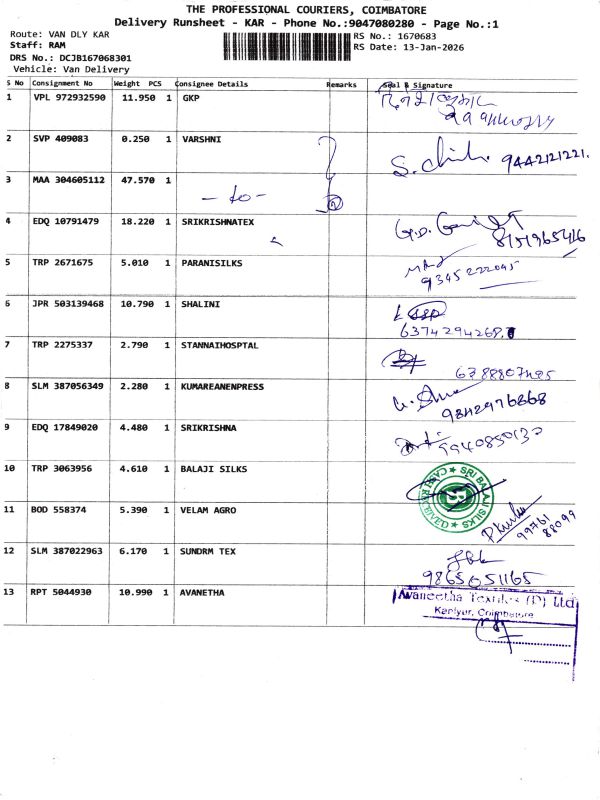 THE PROFESSIONAL COURIERS, COIMBATORE
Delivery Runsheet - KAR - Phone No.:9047080280 - Page No.:1
Route: VAN DLY KAR
Staff: RAM
DRS No.: DCJB167068301
Vehicle: Van Delivery
RS No.: 1670683
RS Date: 13-Jan-2026
S No Consignment No Weight PCS Consignee Details Remarks Seal & Signature
1 VPL 972932590 11.950 1 GKP
2 SVP 409083 0.250 1 VARSHNI 9442121221.
3 MAA 304605112 47.570 1 - to -
4 EDQ 10791479 18.220 1 SRIKRISHNATEX 8151965416
5 TRP 2671675 5.010 1 PARANISILKS 9345222045
6 JPR 503139468 10.790 1 SHALINI 6374294268.
7 TRP 2275337 2.790 1 STANNAIHOSPTAL
8 SLM 387056349 2.280 1 KUMAREANENPRESS 9842976868
9 EDQ 17849020 4.480 1 SRIKRISHNA
10 TRP 3063956 4.610 1 BALAJI SILKS
SRI BALAJI SILKS
11 BOD 558374 5.390 1 VELAM AGRO 99761 88099
12 SLM 387022963 6.170 1 SUNDRM TEX 9865051165
13 RPT 5044930 10.990 1 AVANETHA
Avaneetha Textiles (P) Ltd
Kaniyur, Coimbatore